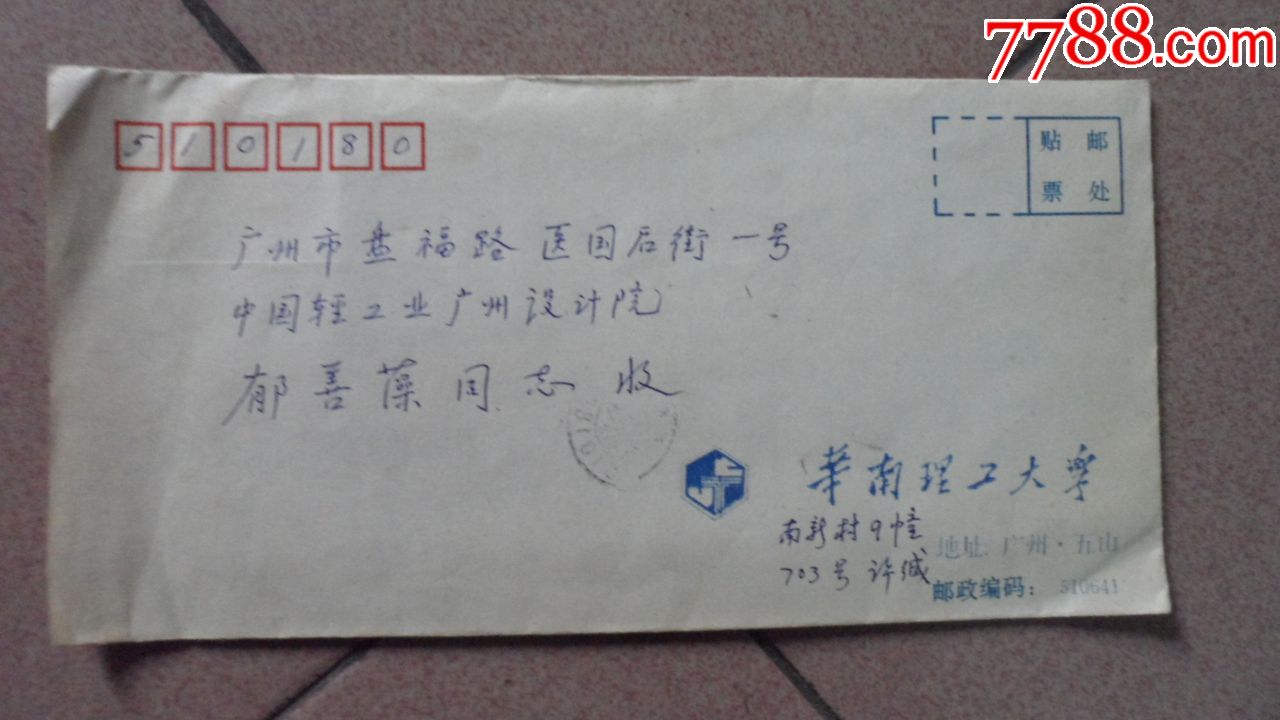 7788.com
510180
贴邮
票处
广州市盘福路医国后街一号
中国轻工业广州设计院
郁善藻同志收
华南理工大学
南新村9幢
703号 许
地址:广州·五山
邮政编码:510641